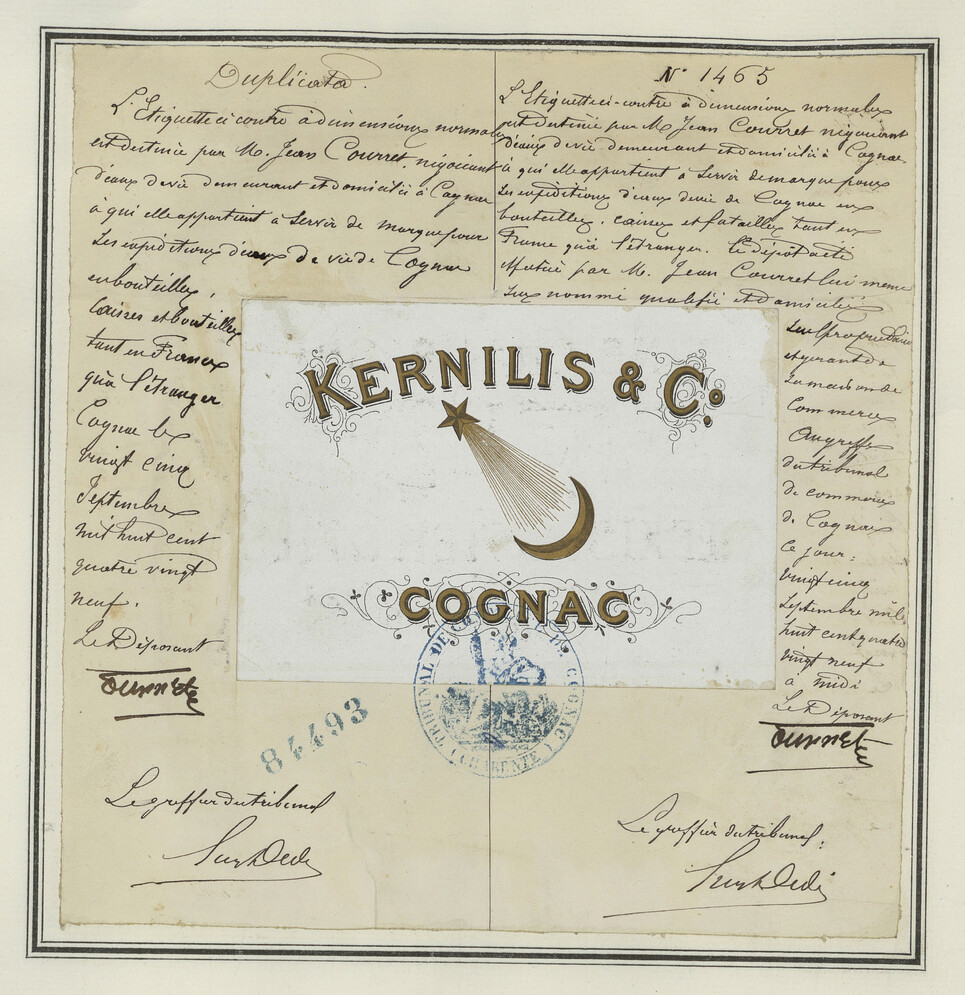 Duplicata.
L'Etiquette ci contre à dimensions normales
est destinée par M. Jean Courret, négociant
d'eaux de vie demeurant et domicilié à Cognac
à qui elle appartient à servir de marque pour
ses expéditions d'eaux de vie de Cognac
en bouteilles,
caisses et bouteilles
tant en France
qu'à l'étranger
Cognac le
vingt cinq
Septembre
mil huit cent
quatre vingt
neuf.
Le Déposant
Le greffier du tribunal
N° 1465
L'Etiquette ci-contre à dimensions normales
est destinée par M. Jean Courret négociant
d'eaux de vie demeurant et domicilié à Cognac
à qui elle appartient à servir de marque pour
ses expéditions d'eaux de vie de Cognac en
bouteilles, caisses et futailles tant en
France qu'à l'étranger. Le dépôt a été
effectué par M. Jean Courret lui même
sus nommé qualifié et domicilié
seul propriétaire
et gérant de
sa maison de
commerce
Au greffe
du tribunal
de commerce
de Cognac
ce jour:
vingt cinq
Septembre mil
huit cent quatre
vingt neuf
à midi
Le Déposant
Le greffier du tribunal:
KERNILIS & Co.
COGNAC
TRIBUNAL DE COMMERCE DE COGNAC
(CHARENTE)
84493